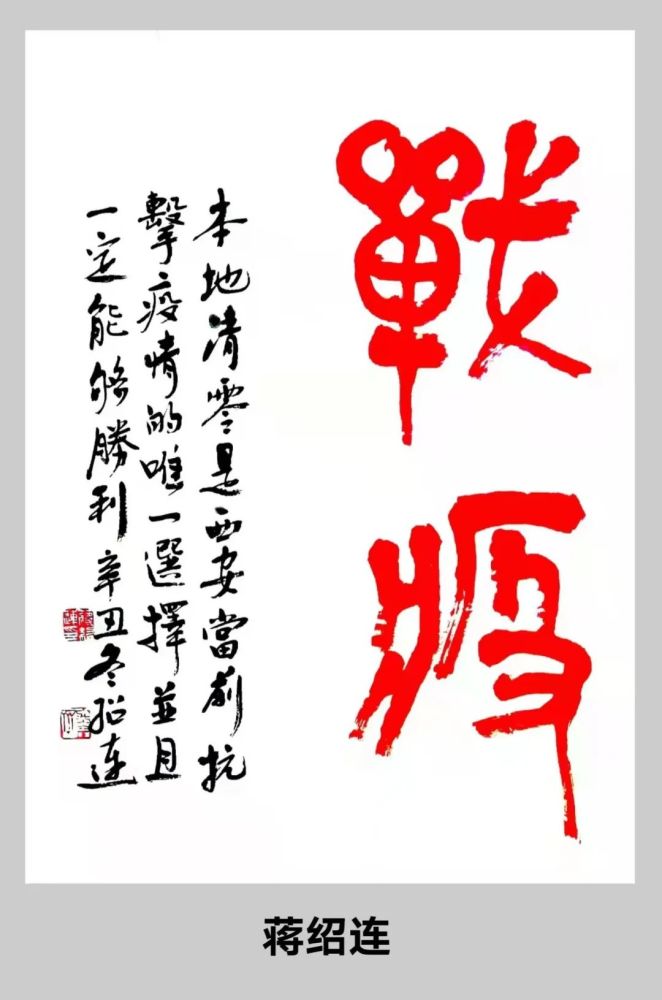 戰疫
本地清零是西安當前抗
擊疫情的唯一選擇並且
一定能够勝利 辛丑冬 紹連
蒋绍连